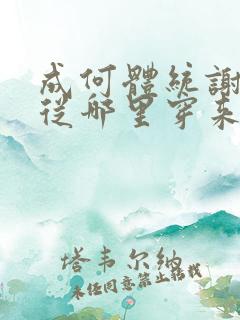 成何體統謝
從哪里穿来
塔韦尔纳
未经同意禁止转载